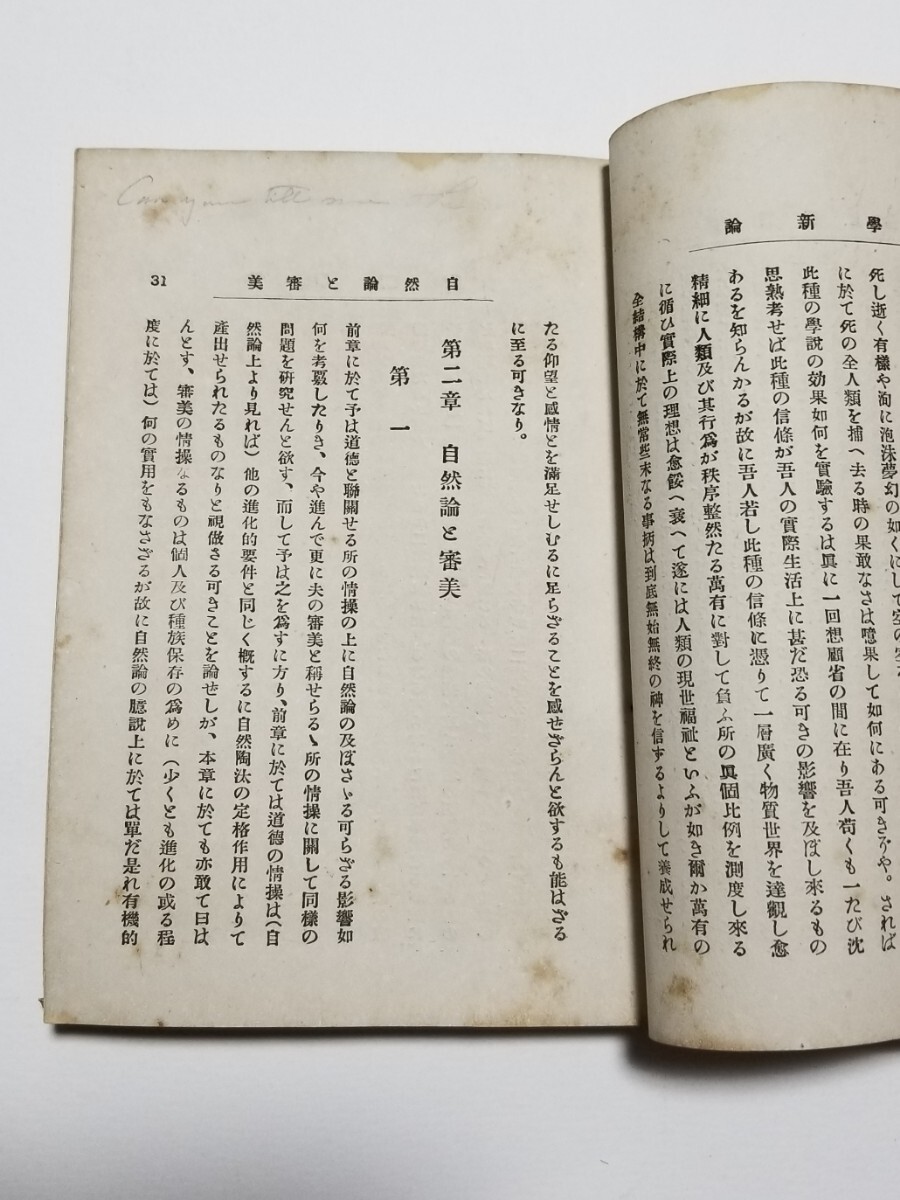 論 新 學
死し逝く有樣や洵に泡沫夢幻の如くにして
に於て死の全人類を捕へ去る時の果敢なさは噫果して如何にある可きぞや。されば
此種の學說の効果如何を實驗するは眞に一回想顧省の間に在り吾人苟くも一たび沈
思熟考せば此種の信條が吾人の實際生活上に甚だ恐る可きの影響を及ぼし來るもの
あるを知らんかるが故に吾人若し此種の信條に憑りて一層廣く物質世界を達觀し愈
精細に人類及び其行爲が秩序整然たる萬有に對して負ふ所の眞個比例を測度し來る
に循ひ實際上の理想は愈餒へ衰へて遂には人類の現世福祉といふが如き爾か萬有の
全結構中に於て無常些末なる事柄は到底無始無終の神を信ずるよりして養成せられ
31
美審と論然自
たる仰望と感情とを滿足せしむるに足らざることを感せざらんと欲するも能はざる
に至る可きなり。
第二章 自然論と審美
第一
前章に於て予は道德と聯關せる所の情操の上に自然論の及ぼさゝる可らざる影響如
何を考覈したりき、今や進んで更に夫の審美と稱せらるゝ所の情操に關して同樣の
問題を硏究せんと欲す、而して予は之を爲すに方り、前章に於ては道德の情操は(自
然論上より見れば)他の進化的要件と同じく槪するに自然陶汰の定格作用によりて
產出せられたるものなりと視做さる可きことを論せしが、本章に於ても亦敢て曰は
んとす、審美の情操なるものは個人及び種族保存の爲めに(少くとも進化の或る程
度に於ては)何の實用をもなさざるが故に自然論の臆說上に於ては單だ是れ有機的